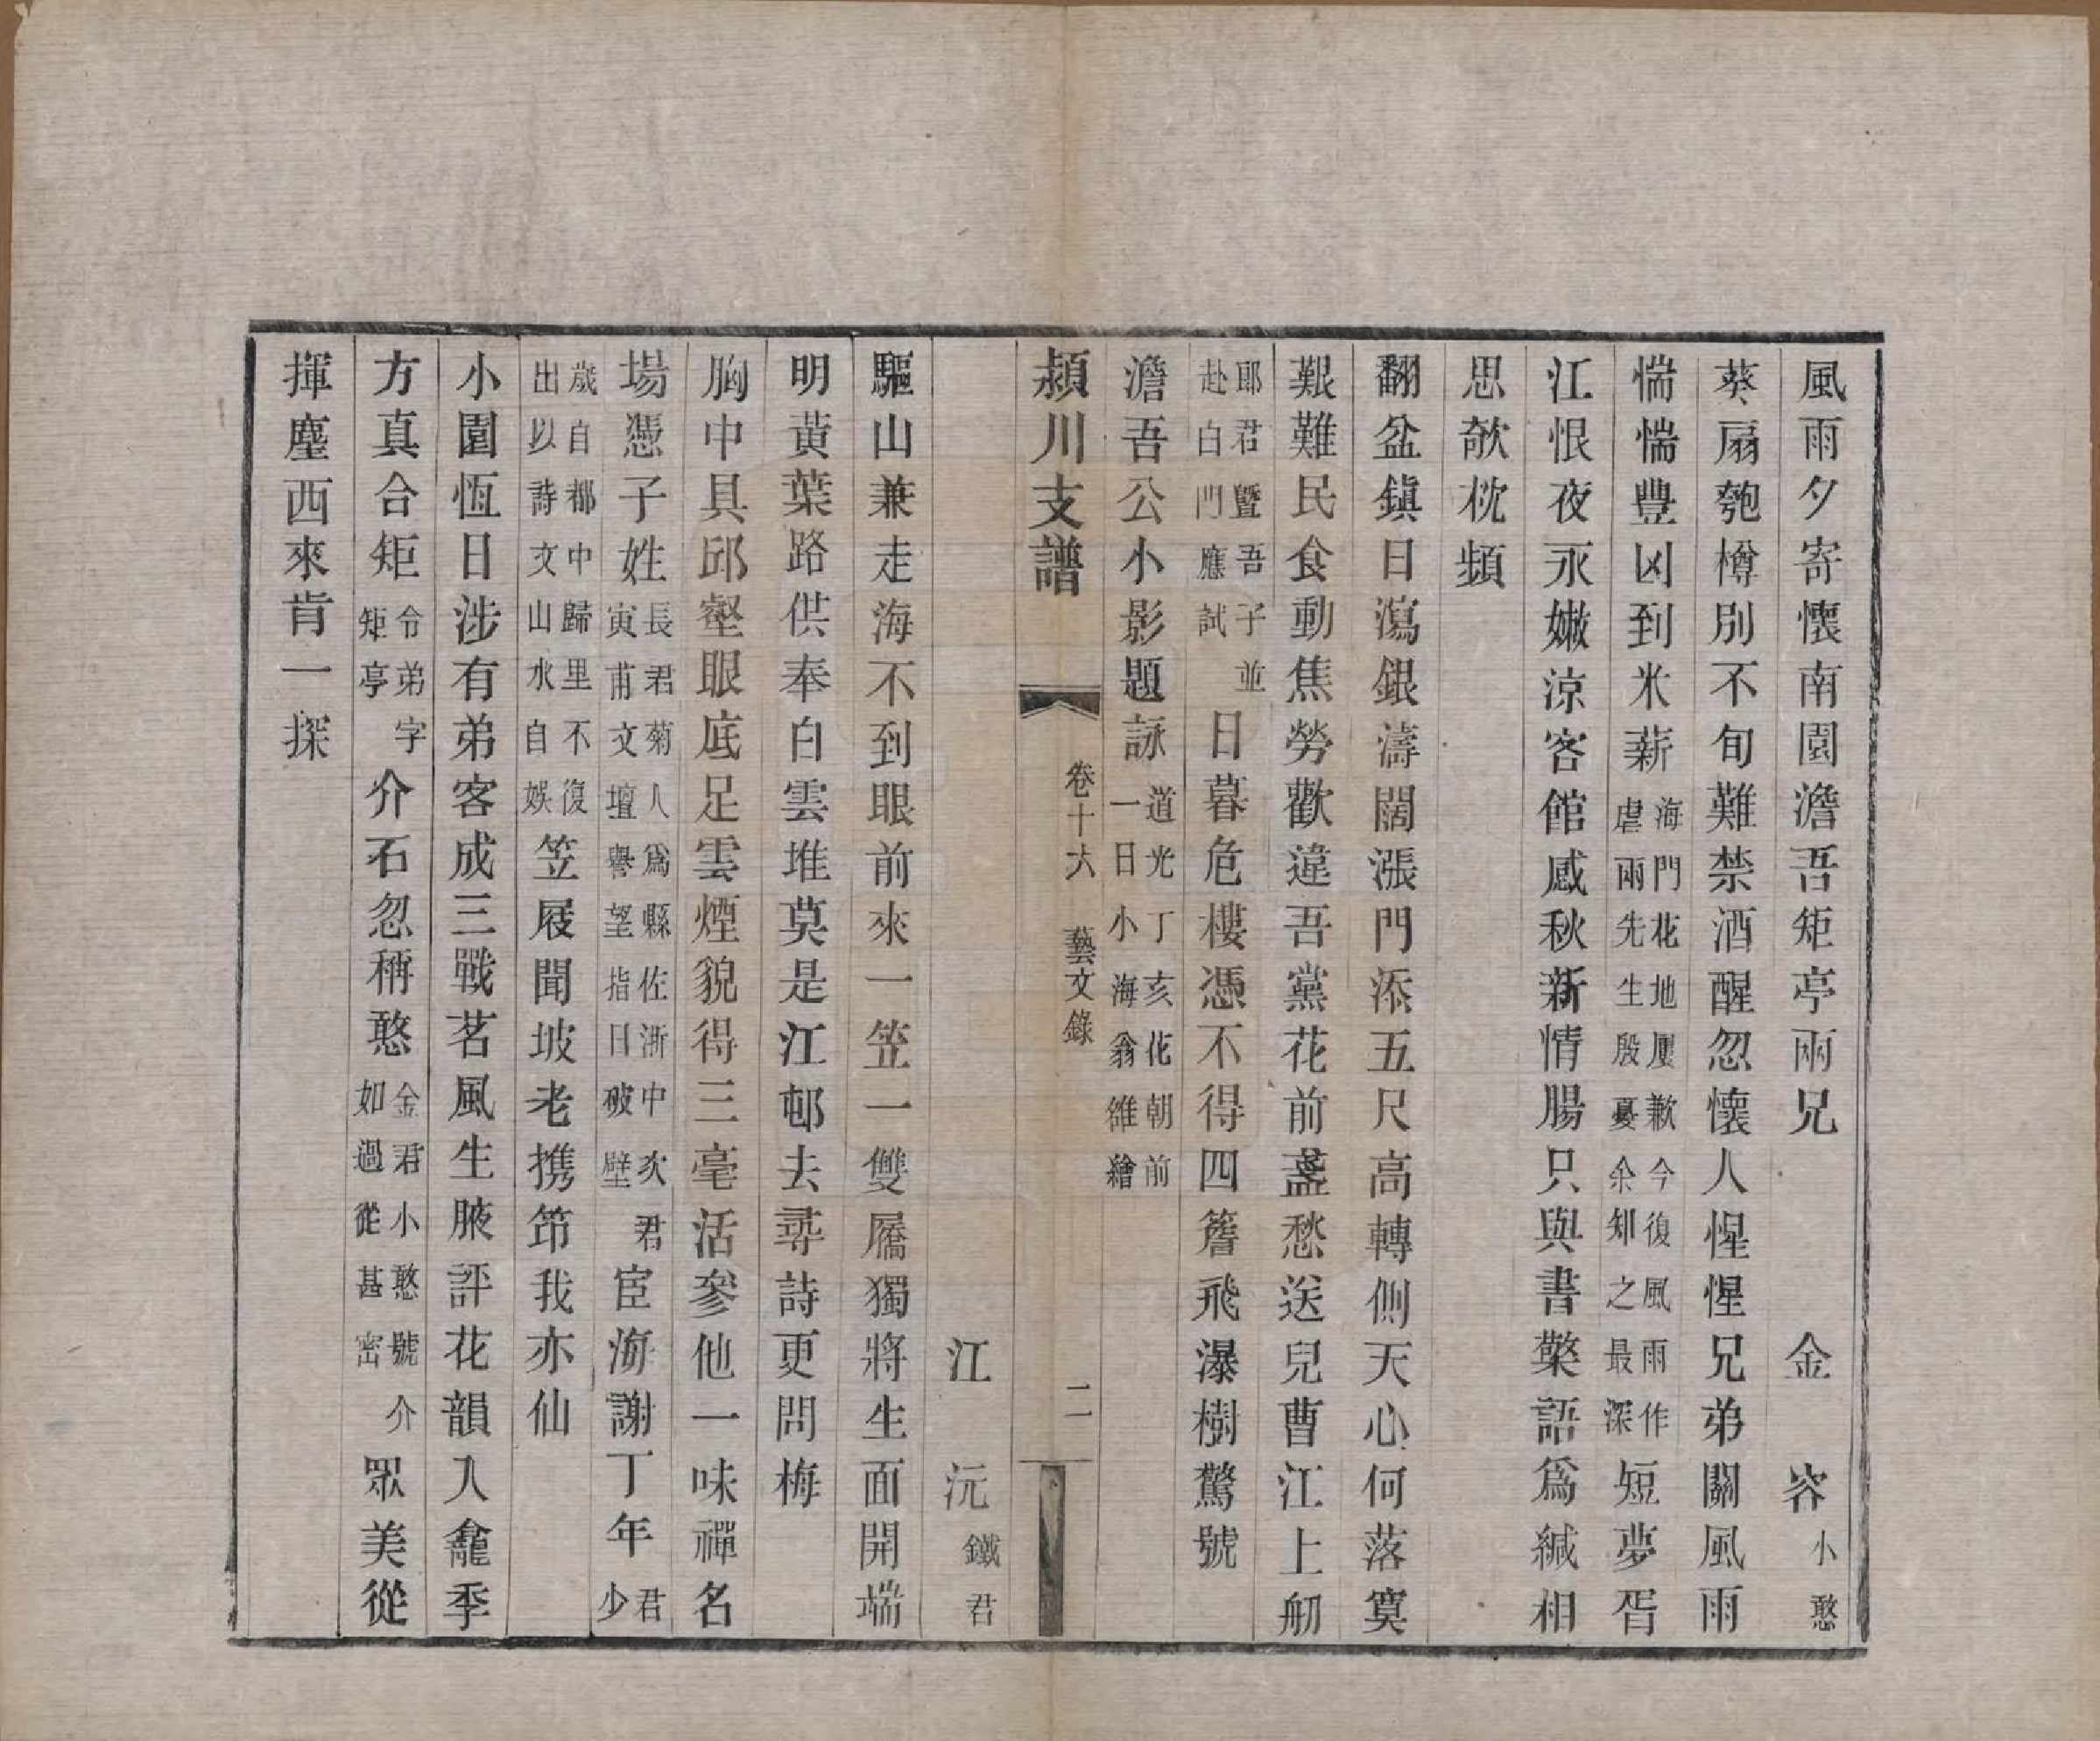 風雨夕寄懷南園澹吾矩亭兩兄　金　容小憨
葵扇匏樽別不旬難禁酒醒忽懷人惺惺兄弟關風雨
惴惴豐凶到米薪海門花地屢歉今復風雨作虐兩先生殷憂余知之最深短夢胥
江恨夜永嫩涼客館感秋新情腸只與書檠語爲緘相
思欹枕頻
翻盆鎮日瀉銀濤闊漲門添五尺高轉側天心何落寞
艱難民食動焦勞歡違吾黨花前盞愁送兒曹江上舠
郎君暨吾子並赴白門應試日暮危樓憑不得四簷飛瀑樹驚號
澹吾公小影題詠道光丁亥花朝前一日小海翁雒繪
潁川支譜　卷十六　藝文錄　二
江　沅鐵君
驅山兼走海不到眼前來一笠一雙屩獨將生面開端
明黃葉路供奉白雲堆莫是江邨去尋詩更問梅
胸中具邱壑眼底足雲煙貌得三毫活參他一味禪名
場憑子姓長君菊人爲縣佐浙中次君寅甫文壇譽望指日破壁宦海謝丁年君少
歲自都中歸里不復出以詩文山水自娛笠屐聞坡老携筇我亦仙
小園恆日涉有弟客成三戰茗風生腋評花韻入龕季
方真合矩令弟字矩亭介石忽稱憨金君小憨號介如過從甚密眾美從
揮麈西來肯一探